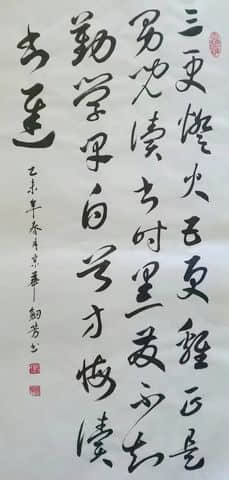 三更燈火五更雞正是
男兒讀书时黑发不知
勤學早白首方悔讀
书遲
乙未年春月京華芳书